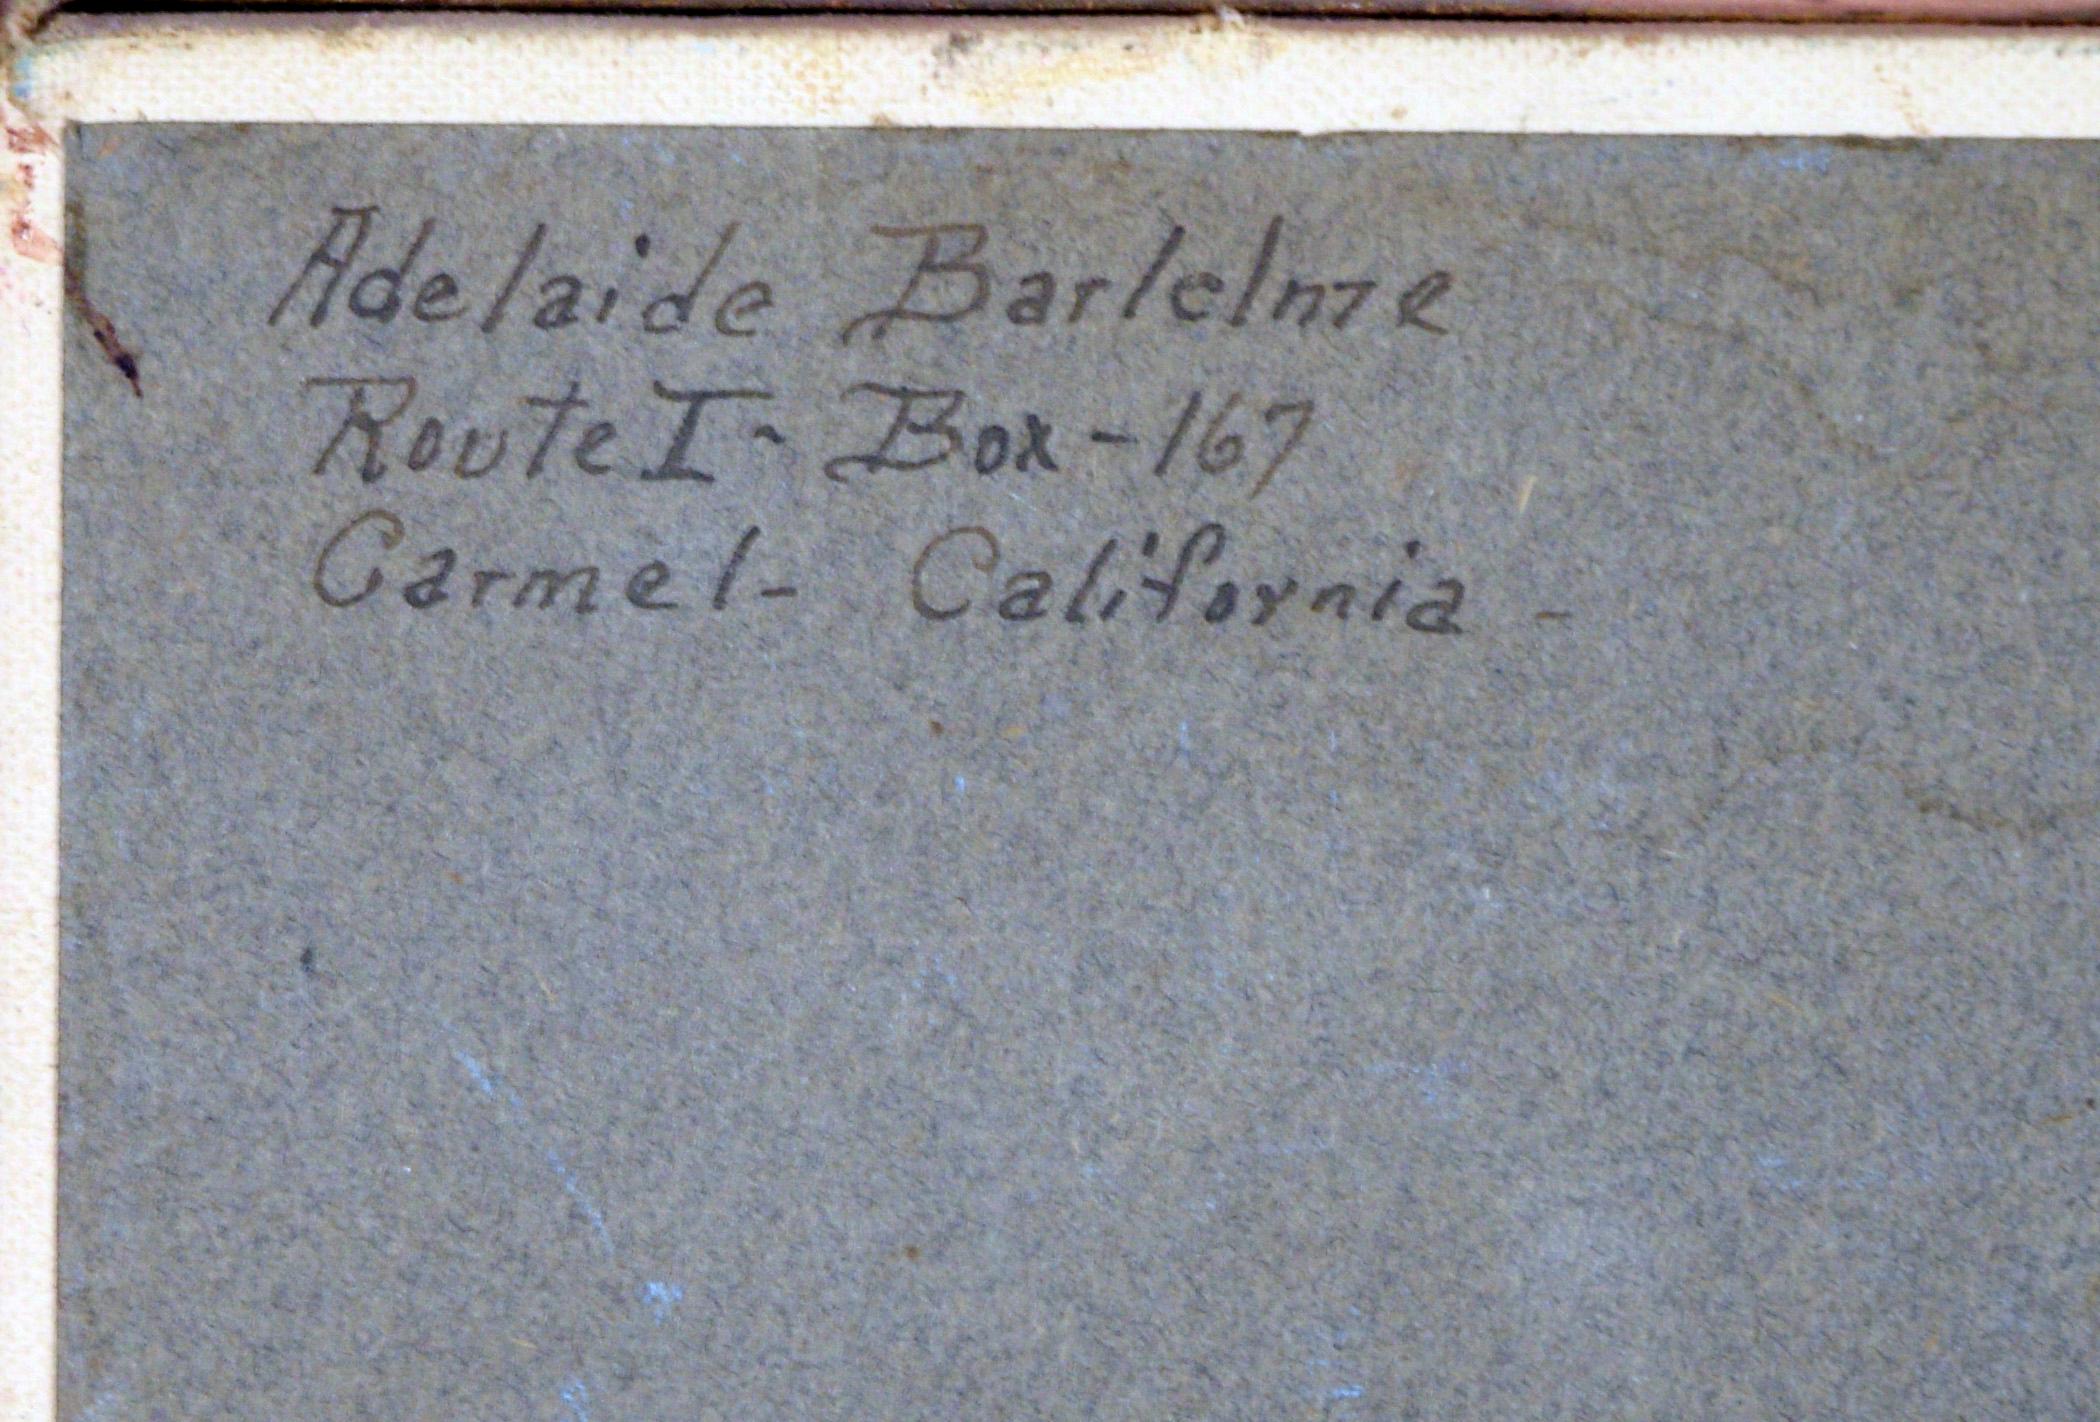 Adelaide Barlelme
Route I - Box - 167
Carmel - California -